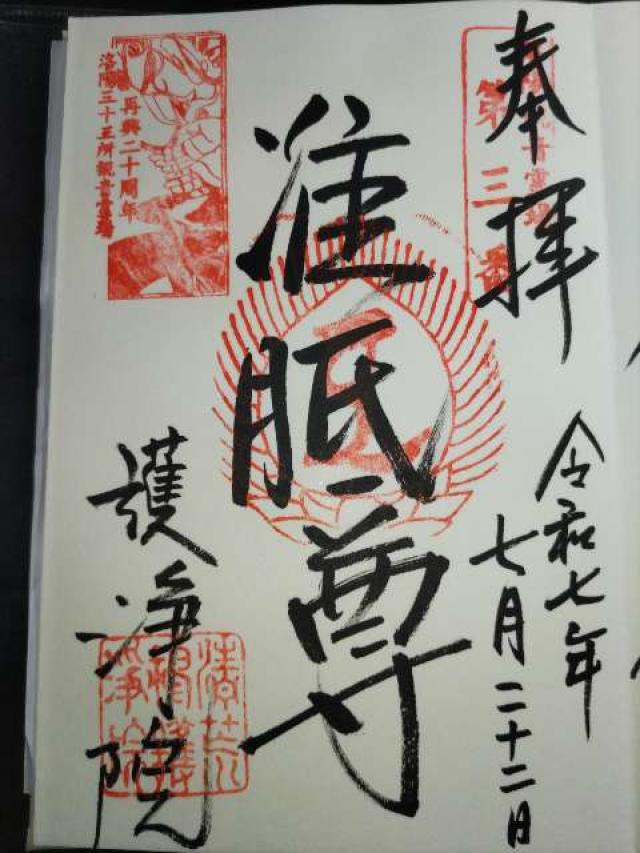 奉拝
第三番
令和七年
七月二十二日
准胝尊
再興二十周年
洛陽三十三所観音霊場
護浄院